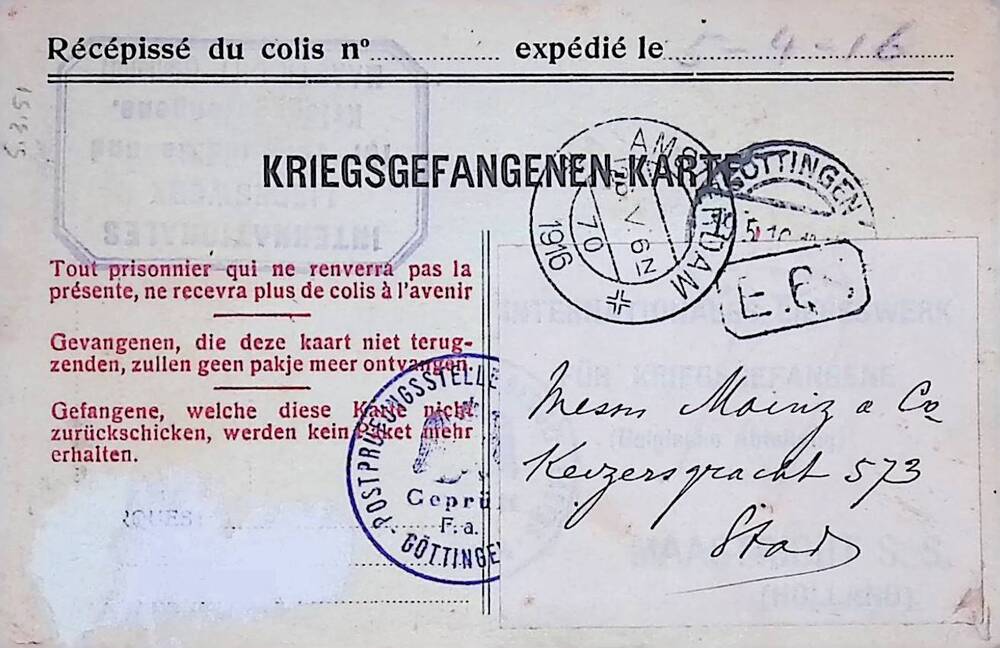 Récépissé du colis nº .................. expédié le 5-4-16
KRIEGSGEFANGENEN-KARTE
AMSTERDAM
1916
GÖTTINGEN
Tout prisonnier qui ne renverra pas la
présente, ne recevra plus de colis à l'avenir
Gevangenen, die deze kaart niet terug-
zenden, zullen geen pakje meer ontvangen.
Gefangene, welche diese Karte nicht
zurückschicken, werden kein Paket mehr
erhalten.
POSTPRÜFUNGSSTELLE
Geprü
F. a.
GÖTTINGE
INTERNATIONALES LIEBESWERK
FÜR KRIEGSGEFANGENE
(Belgische Abteilung)
MAASTRICHT
(HOLLAND)
Messrs Mainz & Co
Keizersgracht 573
Stad